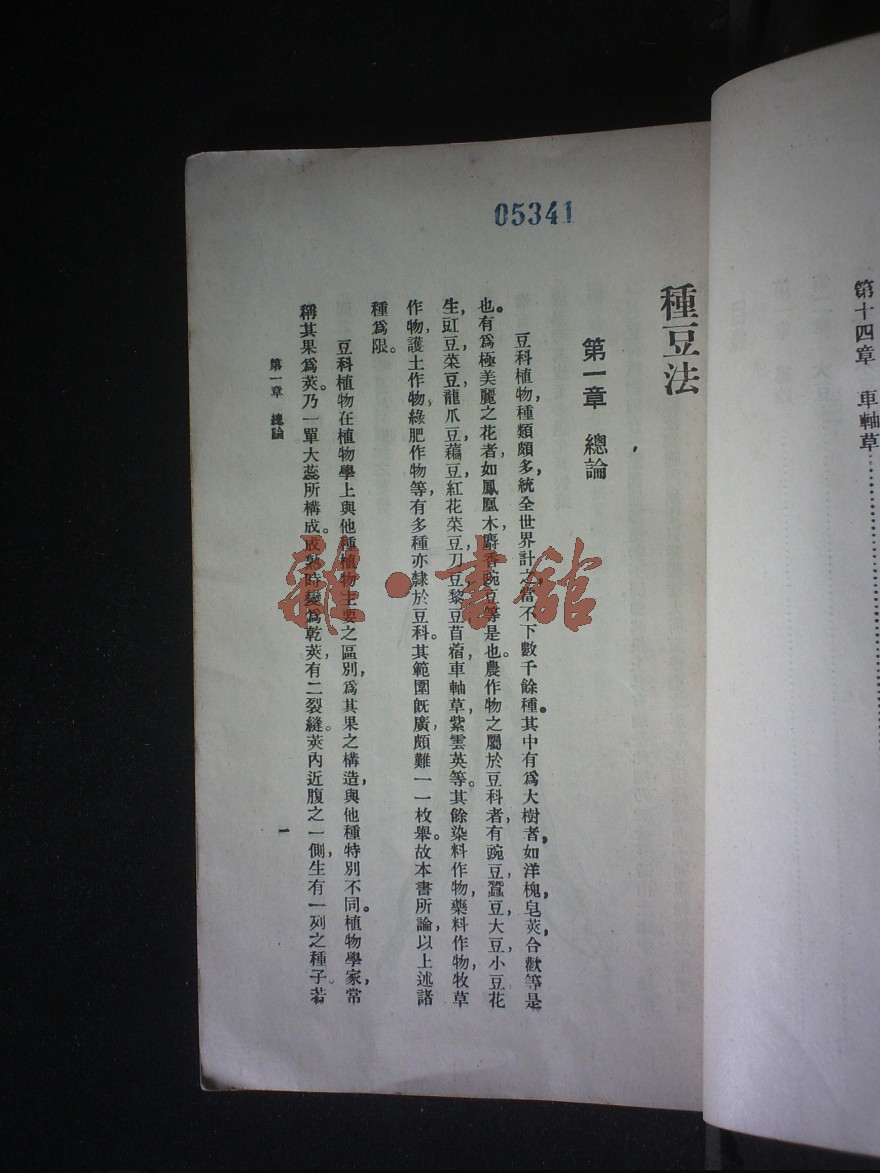 第十四章　車軸草
05341
種豆法
第一章　總論
豆科植物，種類頗多，統全世界計之，當不下數千餘種。其中有爲大樹者，如洋槐，皂莢，合歡等是
也。有爲極美麗之花者，如鳳凰木，麝香豌豆等是也。農作物之屬於豆科者，有豌豆，蠶豆，大豆，小豆，花
生，豇豆，菜豆，龍爪豆，藊豆，紅花菜豆，刀豆，黎豆，苜蓿，車軸草，紫雲英等。其餘染料作物，藥料作物，牧草
作物，護土作物，綠肥作物等，有多種亦隸於豆科。其範圍旣廣，頗難一一枚舉。故本書所論，以上述諸
種爲限。
豆科植物在植物學上與他種植物主要之區別，爲其果之構造，與他種特別不同。植物學家，常
稱其果爲莢。乃一單大蕊所構成。成熟時變爲乾莢，有二裂縫。莢內近腹之一側，生有一列之種子。若
第一章　總論
一
雜·書館